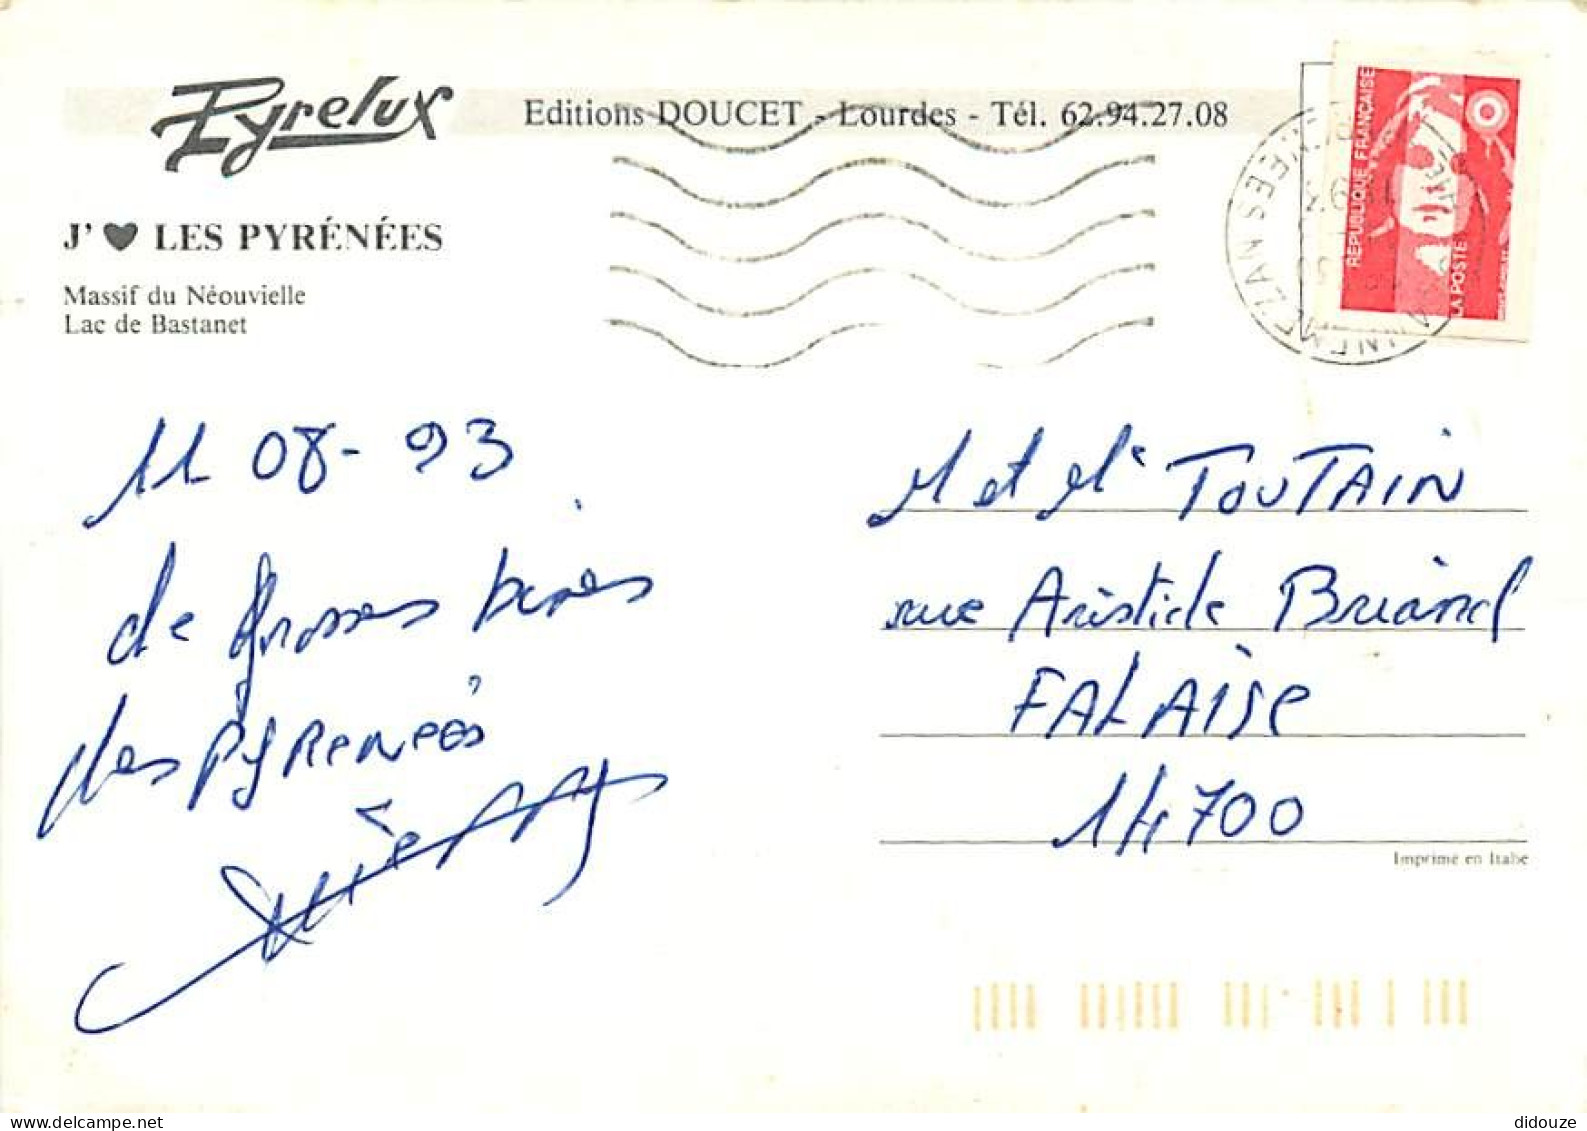 Pyrelux
Editions DOUCET - Lourdes - Tél. 62.94.27.08
J'♥ LES PYRÉNÉES
Massif du Néouvielle
Lac de Bastanet
RÉPUBLIQUE FRANÇAISE
LA POSTE
11 08-93
de grosses bises
des PYRENEES
M et Me TOUTAIN
rue Aristide Briand
FALAISE
14700
Imprimé en Italie
delcampe.net
didouze